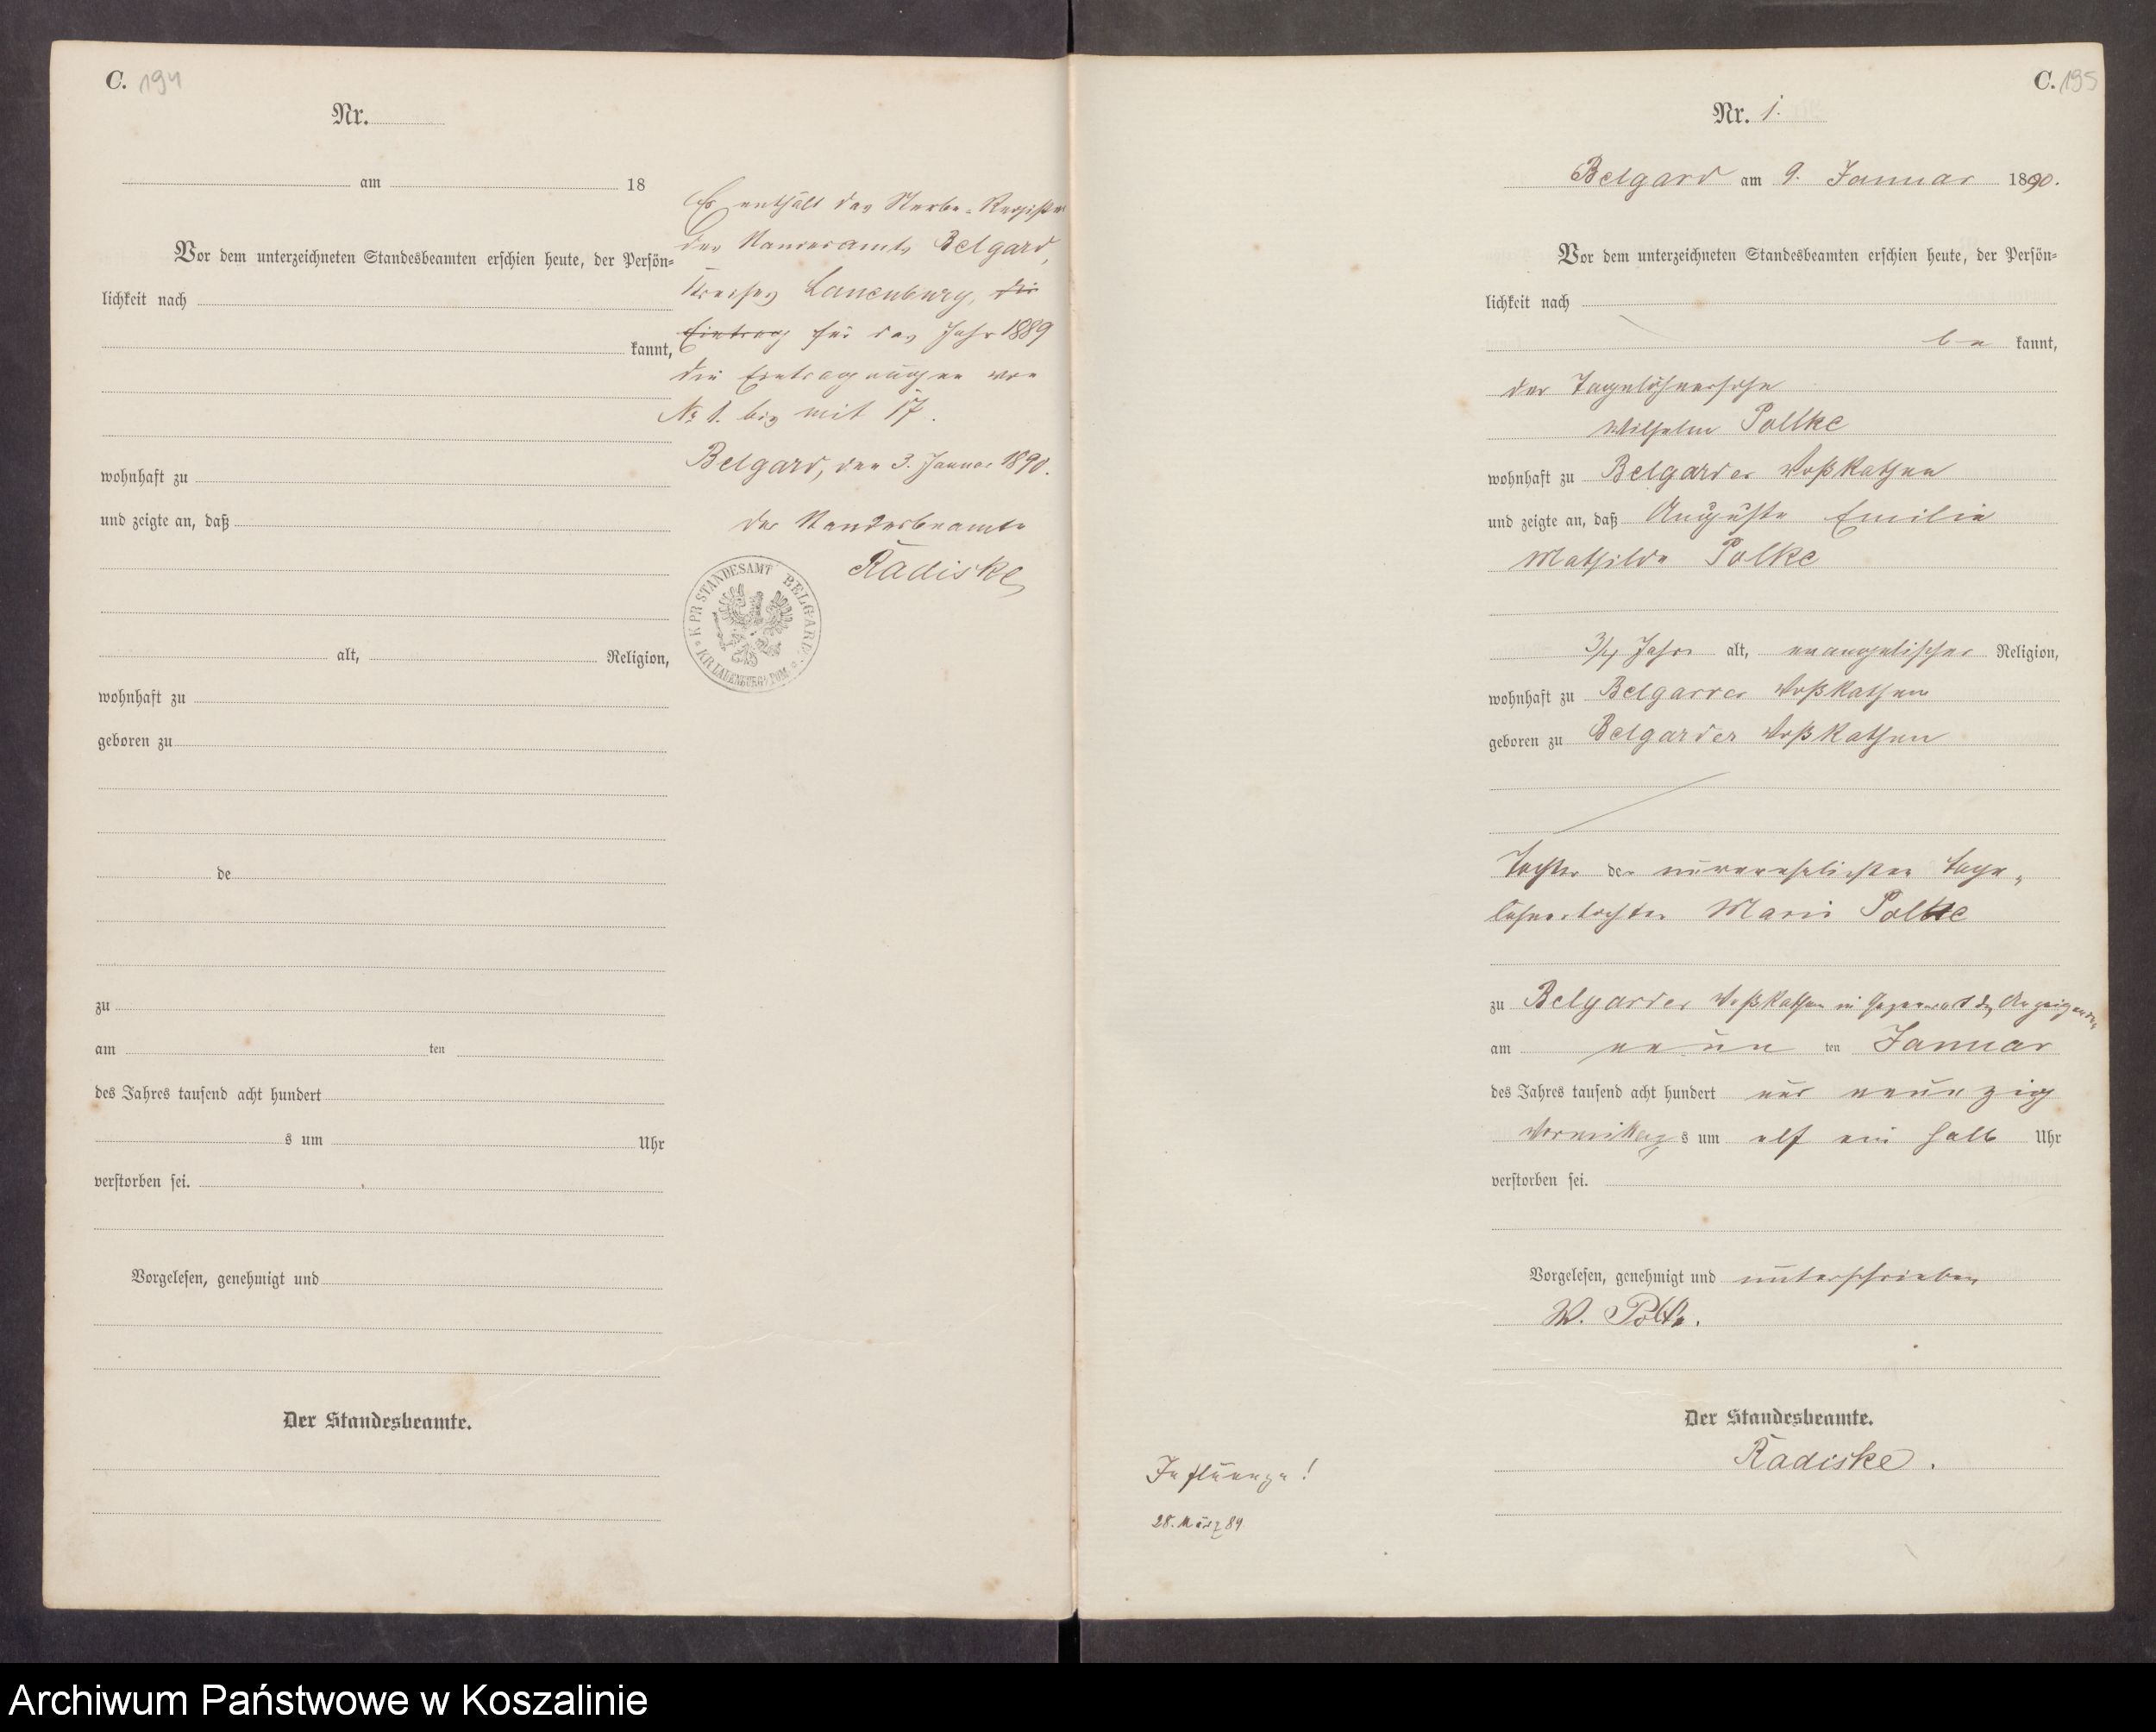 C. 194
Nr.
am 18
Vor dem unterzeichneten Standesbeamten erschien heute, der Persön=
lichkeit nach
kannt,
wohnhaft zu
und zeigte an, daß
alt, Religion,
wohnhaft zu
geboren zu
de
zu
am ten
des Jahres tausend acht hundert
s um Uhr
verstorben sei.
Vorgelesen, genehmigt und
Der Standesbeamte.
Es enthält das Sterbe-Register
des Standesamts Belgard,
Kreises Lauenburg, die
Eintrag für das Jahr 1889
die Eintragungen von
No 1. bis mit 17.
Belgard, den 3. Januar 1890.
Der Standesbeamte
Radiske
K PR STANDESAMT BELGARD
KR LAUENBURG I. POM.
C. 195
Nr. 1.
Belgard am 9. Januar 1890.
Vor dem unterzeichneten Standesbeamten erschien heute, der Persön=
lichkeit nach
be kannt,
der Tagelöhnersohn
Wilhelm Pollke
wohnhaft zu Belgarder Voßkathen
und zeigte an, daß Auguste Emilie
Mathilde Polke
3/4 Jahr alt, evangelischer Religion,
wohnhaft zu Belgarder Voßkathen
geboren zu Belgarder Voßkathen
Tochter der unverehelichten Tage-
löhnertochter Marie Polke
zu Belgarder Voßkathen in Gegenwart des Anzeigenden
am neun ten Januar
des Jahres tausend acht hundert und neunzig
Vormittags um elf ein halb Uhr
verstorben sei.
Vorgelesen, genehmigt und unterschrieben
W. Polke.
Der Standesbeamte.
Radiske.
Influenza!
28. März 89
Archiwum Państwowe w Koszalinie